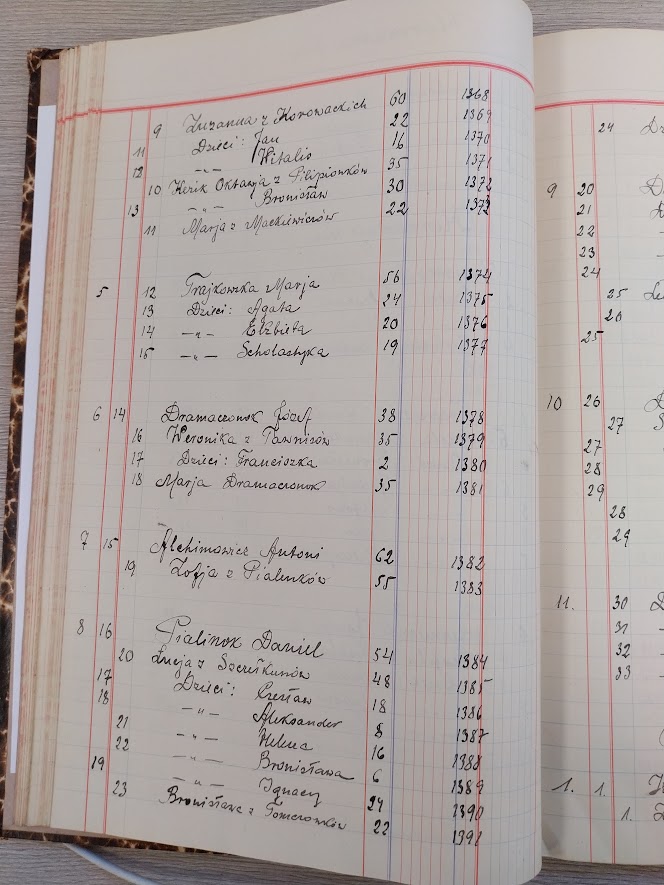 9 Zuzanna z Korowackich 60 1368
Dzieci: Jan 22 1369
11 -„- Witalis 16 1370
12 35 1371
10 Kierik Oktawja z Filipionków 30 1372
13 -„- Bronisław 22 1373
11 Marja z Mackiewiczów
5 12 Trajkowska Marja 56 1374
13 Dzieci: Agata 24 1375
14 -„- Elżbieta 20 1376
15 -„- Scholastyka 19 1377
6 14 Dramaczonok Józef 38 1378
16 Weronika z Tawnisów 35 1379
17 Dzieci: Franciszka 2 1380
18 Marja Dramaczonok 35 1381
7 15 Alchimowicz Antoni 62 1382
19 Zofja z Pialinków 55 1383
8 16 Pialinok Daniel 54 1384
20 Łucja z 48 1385
17 Dzieci: Czesław 18 1386
18 -„- Aleksander 8 1387
21 -„- Helena 16 1388
22 -„- Bronisława 6 1389
19 -„- Ignacy 24 1390
23 Bronisława z 22 1391
24
9 20
21
22
23
24
25
26
25
10 26
27
27
28
29
28
29
11. 30
31
32
33
1. 1.
1.